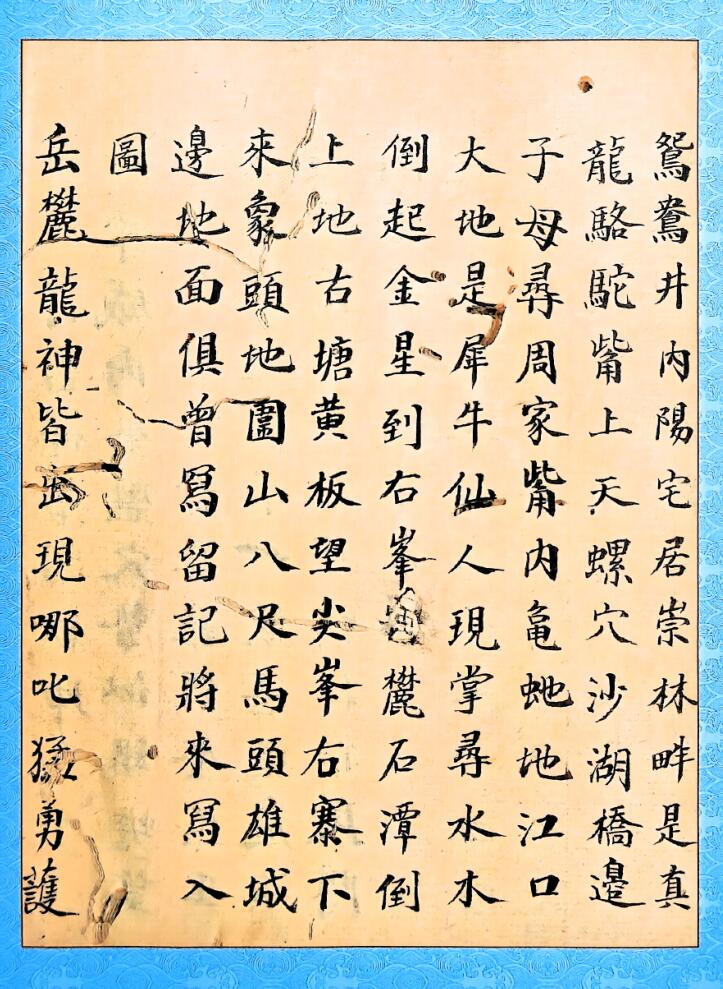 鴛鴦井內陽宅居崇林畔是真
龍駱駝嘴上天螺穴沙湖橋邉
子母尋周家嘴內龜虵地江口
大地是犀牛仙人現掌尋水木
倒起金星到右峯麓石潭倒
上地古塘黄板望尖峯右寨下
來象頭地圍山八尺馬頭雄城
邊地面俱曾寫留記將來寫入
圖
岳麓龍神皆出現哪叱猛勇護